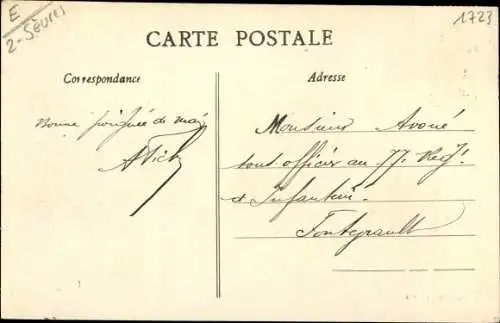 E
2-Sèvres
1723
CARTE POSTALE
Correspondance
Adresse
Bonne poignée de main
Monsieur Avoué
sous officier au 77 Reg!
d Infanterie
Fontevrault